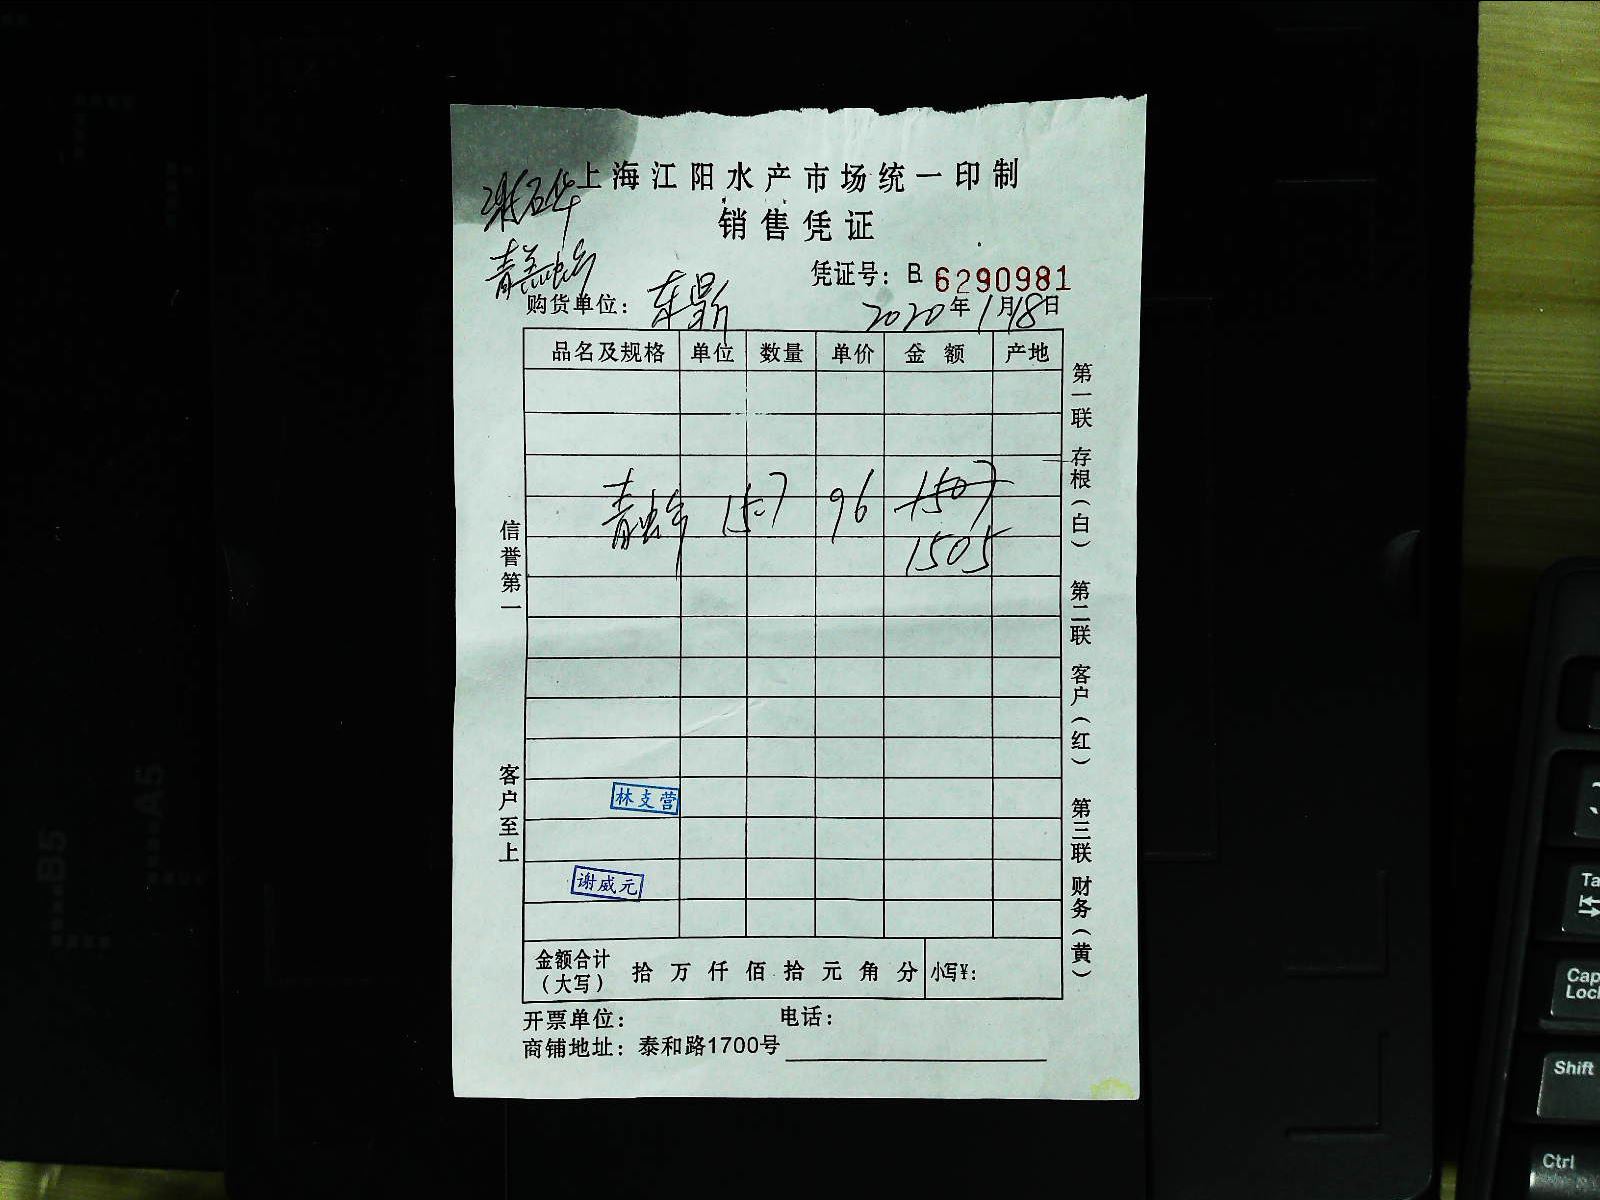 上海江阳水产市场统一印制
销售凭证
凭证号：B 6290981
购货单位：东鼎 2020年1月18日
品名及规格 单位 数量 单价 金额 产地
15.7 96 1507
1505
林支营
谢威元
金额合计（大写） 拾 万 仟 佰 拾 元 角 分 小写¥：
开票单位： 电话：
商铺地址：泰和路1700号
信誉第一 客户至上
第一联 存根（白） 第二联 客户（红） 第三联 财务（黄）
B5
A5
Tab
Caps Lock
Shift
Ctrl